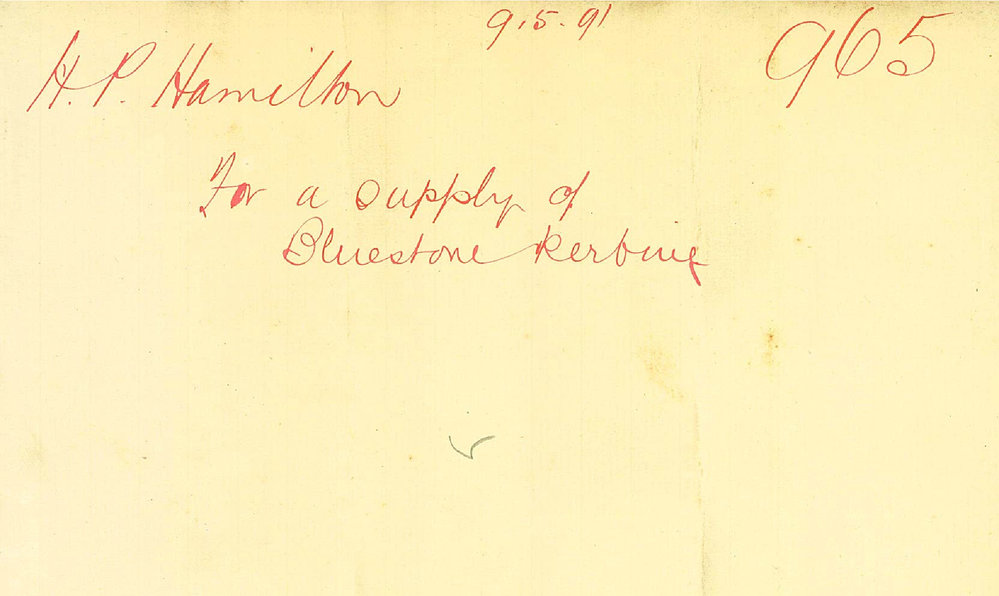 9.5.91
965
H. P. Hamilton
For a supply of
Bluestone Kerbing